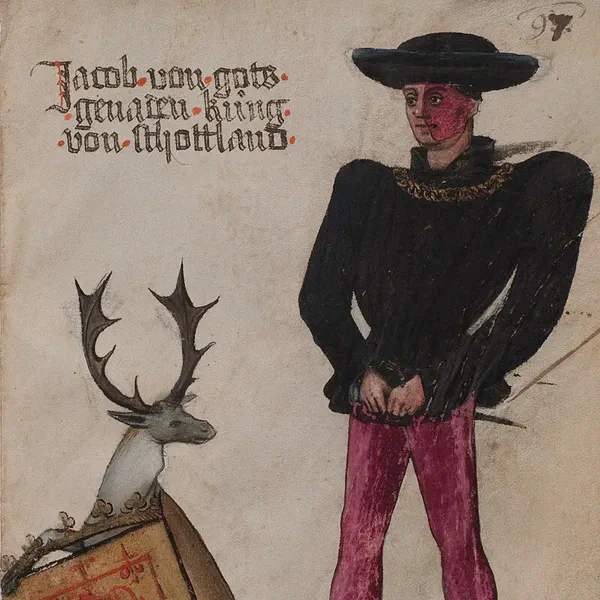 Jacob · von · gots ·
· genaden · küng ·
· von · schottland ·
97